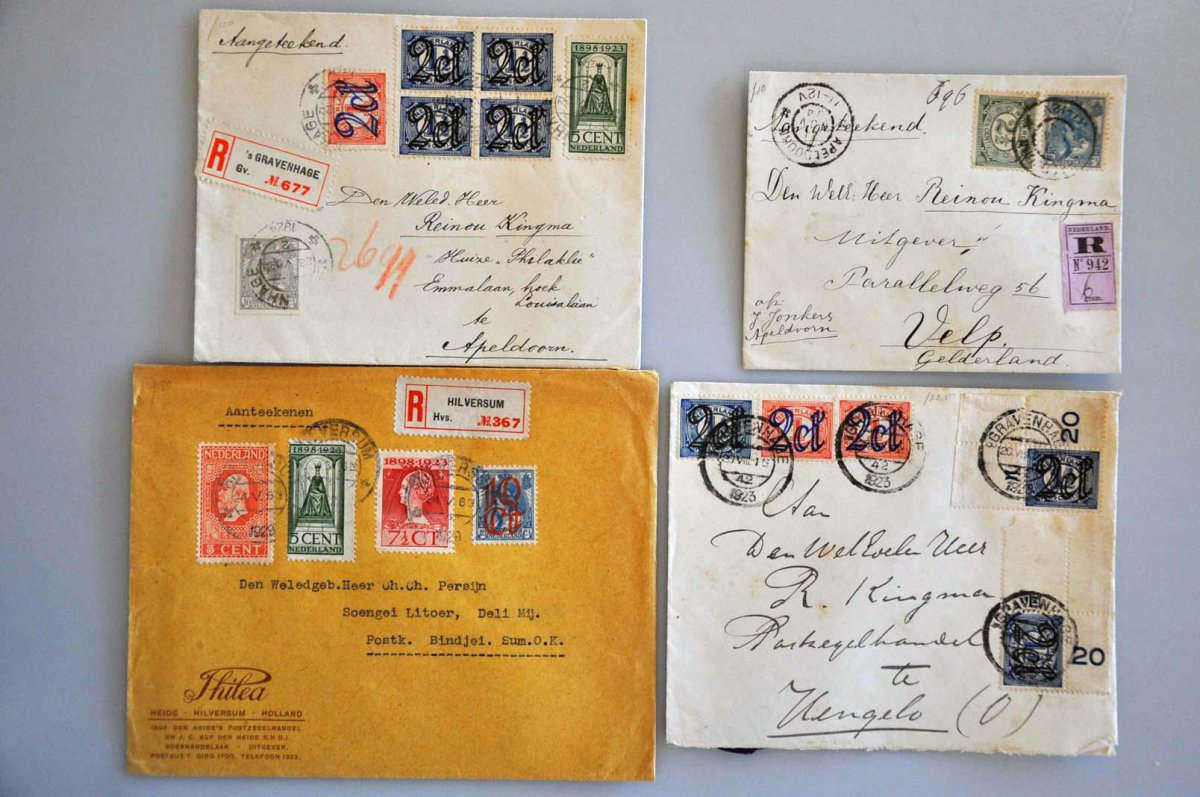 Aangeteekend.
2 ct
2 ct
2 ct
2 ct
2 ct
1898-1923
5 CENT
NEDERLAND
R
's GRAVENHAGE
Gv. № 677
Den Weled. Heer
Reinou Kingma
Huize „Philaklie"
Emmalaan, hoek
Louisalaan
te
Apeldoorn.
Aangeteekend.
APELDOORN
11-12V
Den Well: Heer Reinou Kingma
Uitgever
Parallelweg 56
Velp.
Gelderland.
J. Jonkers
Apeldoorn
NEDERLAND.
R
Nº 942
Aanteekenen
R
HILVERSUM
Hvs. № 367
NEDERLAND
5 CENT
1898-1923
5 CENT
NEDERLAND
1898 1923
7½ CT
10 CT
Den Weledgeb.Heer Ch.Ch. Persijn
Soengei Litoer, Deli Mij.
Postk. Bindjei. Sum.O.K.
Philea
HEIDE - HILVERSUM - HOLLAND
(AUF DER HEIDE'S POSTZEGELHANDEL
EN J. C. AUF DER HEIDE E.H.D.)
BOEKHANDELAAR - UITGEVER.
POSTBUS 7. GIRO 1700. TELEFOON 1923.
2 ct
2 ct
2 ct
'SGRAVENHAGE
42
1923
'SGRAVENHAGE
42
1923
'SGRAVENHAGE
1923
20
2 ct
'SGRAVENHAGE
2 ct
20
Aan
Den WelEdelen Heer
R. Kingma
Postzegelhandel
te
Hengelo (O)